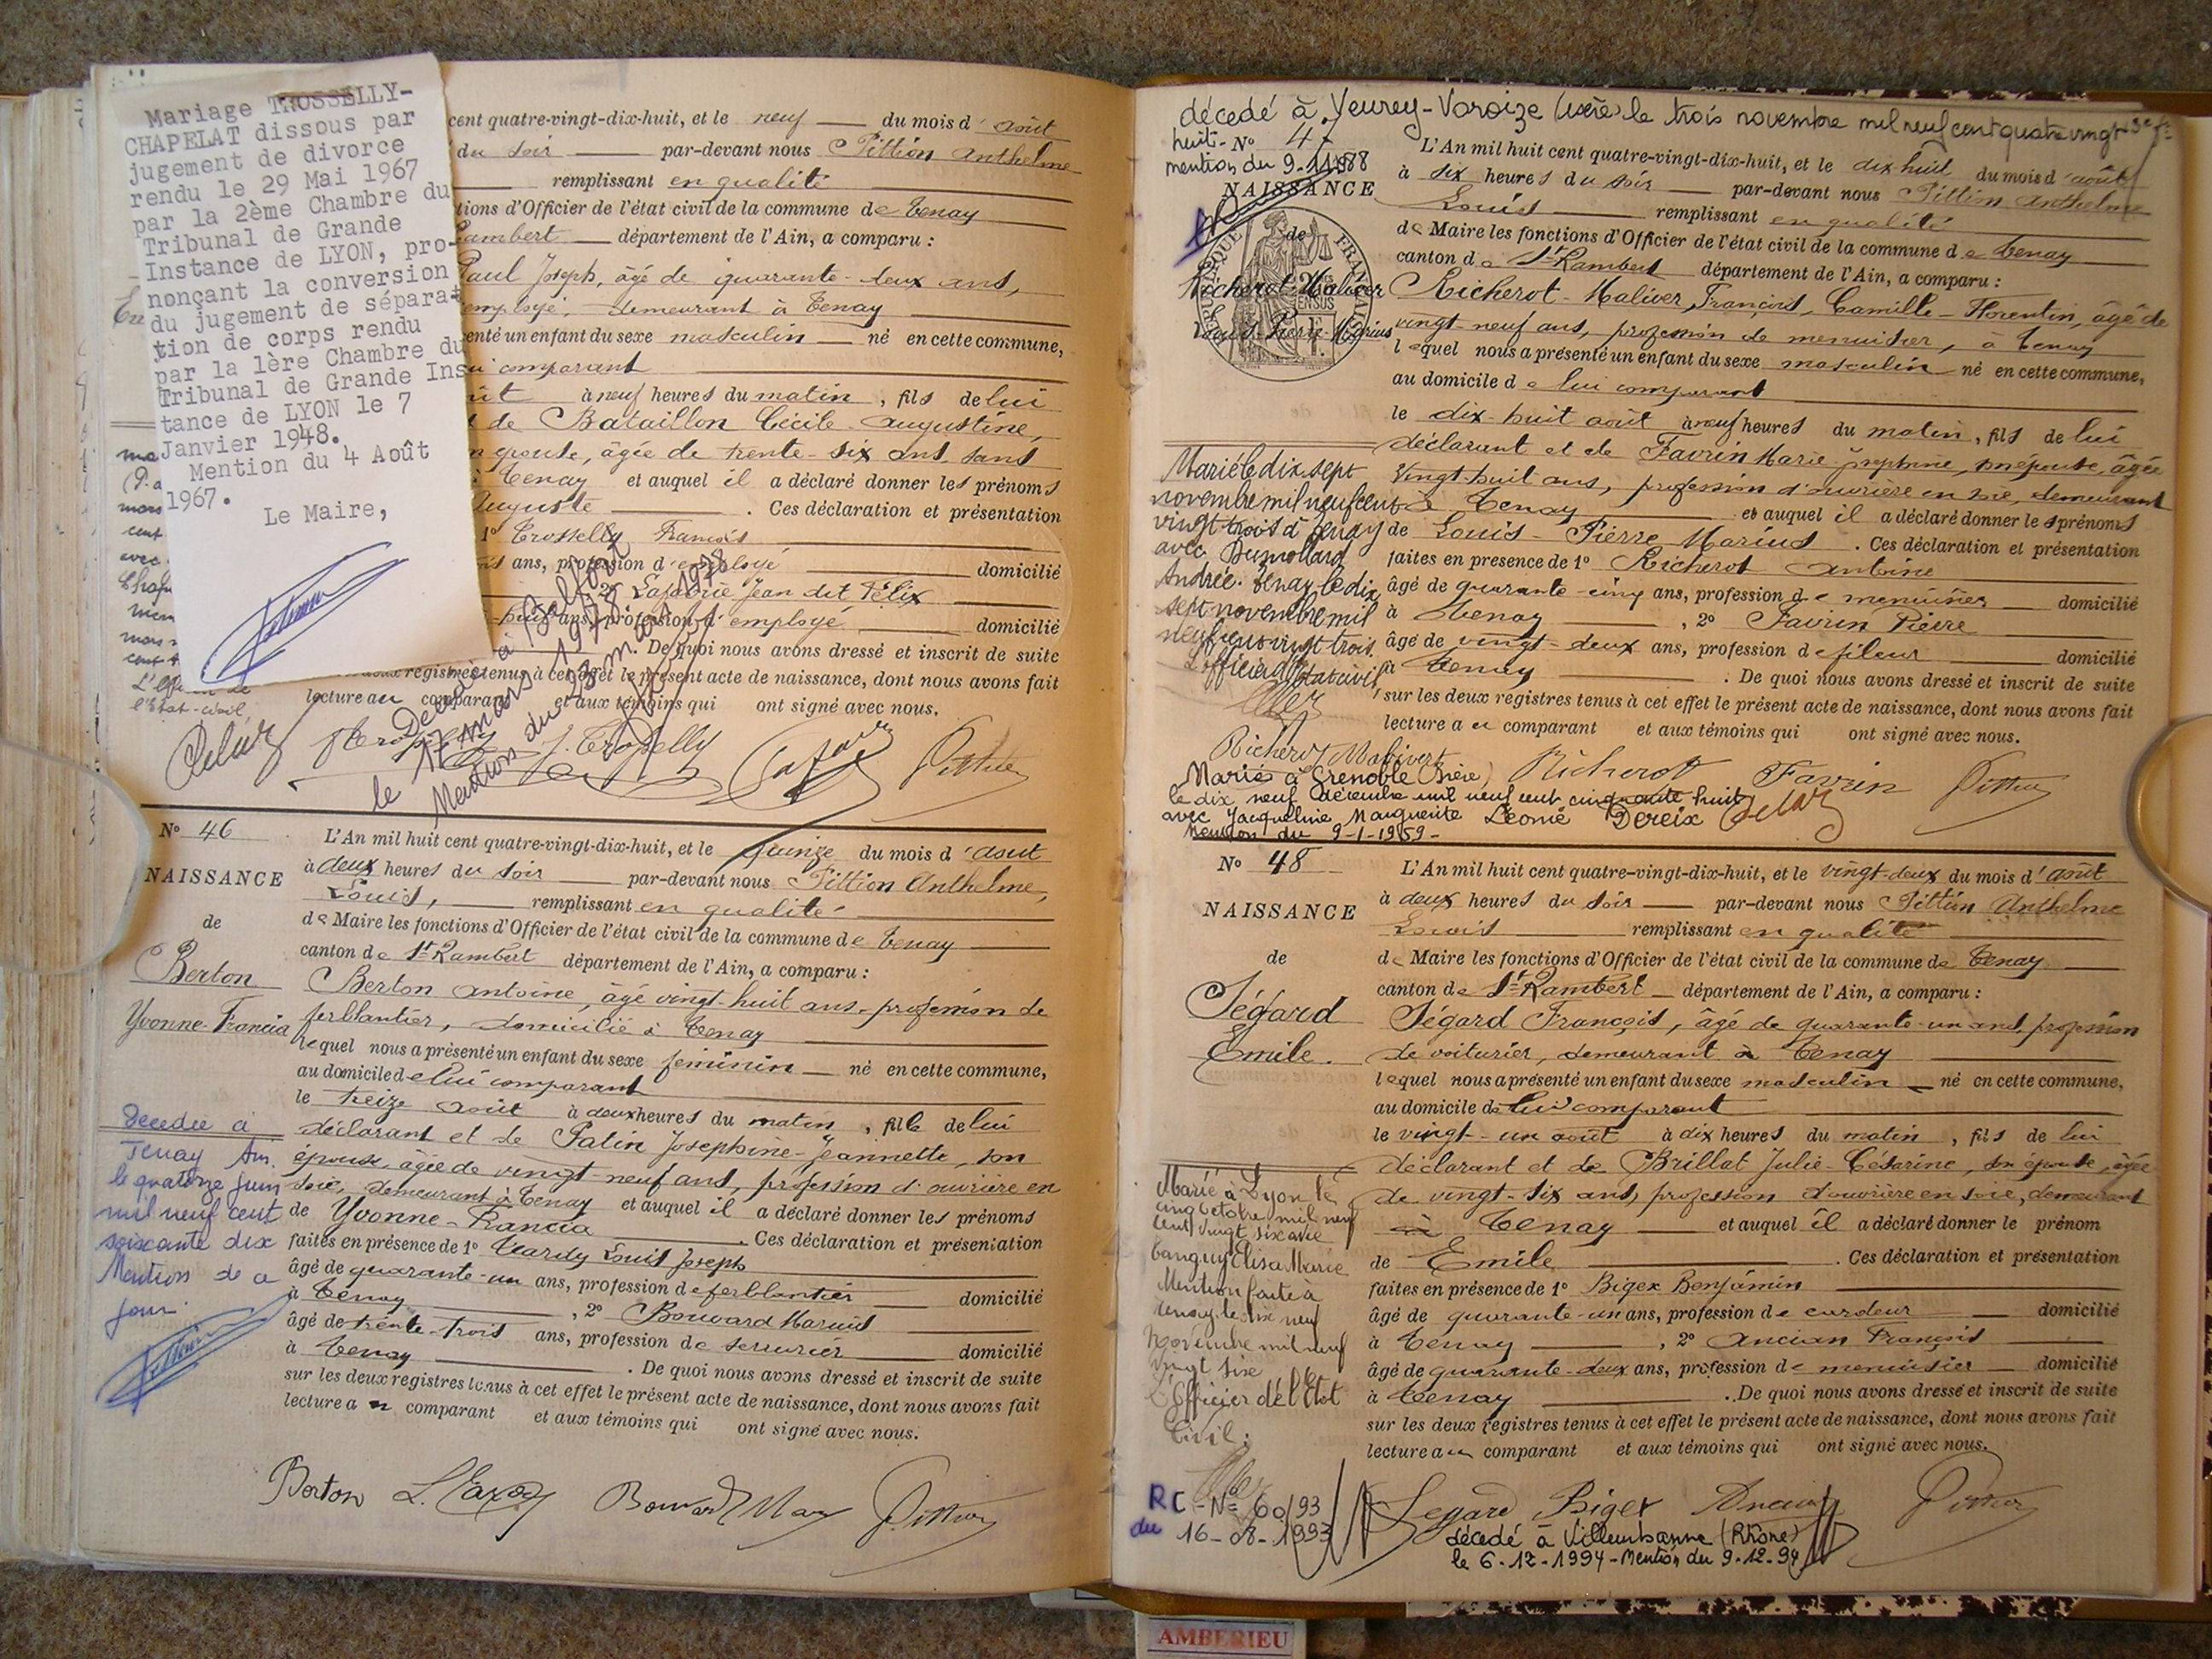 Mariage TROSSELLY-
CHAPELAT dissous par
jugement de divorce
rendu le 29 Mai 1967
par la 2ème Chambre du
Tribunal de Grande
Instance de LYON, pro-
nonçant la conversion
du jugement de séparat
tion de corps rendu
par la 1ère Chambre du
Tribunal de Grande Ins
tance de LYON le 7
Janvier 1948.
Mention du 4 Août
1967.
Le Maire,
cent quatre-vingt-dix-huit, et le neuf du mois d'août
du soir par-devant nous Pittion Anthelme
remplissant en qualité
tions d'Officier de l'état civil de la commune de Tenay
Rambert département de l'Ain, a comparu :
Paul Joseph, âgé de quarante-deux ans,
employé, demeurant à Tenay
enté un enfant du sexe masculin né en cette commune,
comparant
à neuf heures du matin, fils de lui
de Bataillon Cécile Augustine,
épouse, âgée de trente-six ans, sans
Tenay et auquel il a déclaré donner les prénoms
Auguste . Ces déclaration et présentation
1º Trosselly Francois
ans, profession d'employé domicilié
2º Lafabrie Jean dit Félix
ans, profession d'employé domicilié
. De quoi nous avons dressé et inscrit de suite
registres tenus à cet effet le présent acte de naissance, dont nous avons fait
lecture au comparant et aux témoins qui ont signé avec nous.
L'Officier de
l'Etat-civil,
Décédé à Belfort
le 17 mars 1978
Mention du 23 mars 1978
J. Trosselly
Nº 46
NAISSANCE
de
Berton
Yvonne-Francia
L'An mil huit cent quatre-vingt-dix-huit, et le quinze du mois d'août
à deux heures du soir par-devant nous Pittion Anthelme,
Louis, remplissant en qualité
de Maire les fonctions d'Officier de l'état civil de la commune de Tenay
canton de St Rambert département de l'Ain, a comparu :
Berton Antoine, âgé vingt-huit ans, profession de
ferblantier, domicilié à Tenay
lequel nous a présenté un enfant du sexe féminin né en cette commune,
au domicile de lui comparant
le treize août à deux heures du matin, fille de lui
déclarant et de Patin Josephine-Jeannette, son
épouse, âgée de vingt-neuf ans, profession d'ouvrière en
soie, demeurant à Tenay et auquel il a déclaré donner les prénoms
de Yvonne-Francia . Ces déclaration et présentation
faites en présence de 1º Tardy Louis Joseph
âgé de quarante-un ans, profession de ferblantier domicilié
à Tenay , 2º Bouvard Marius
âgé de trente-trois ans, profession de serrurier domicilié
à Tenay . De quoi nous avons dressé et inscrit de suite
sur les deux registres tenus à cet effet le présent acte de naissance, dont nous avons fait
lecture au comparant et aux témoins qui ont signé avec nous.
Décédée à
Tenay Ain
le quatorze juin
mil neuf cent
soixante dix
Mention de ce
jour.
Berton L. Tardy Bouvard Pittion
décédé à Veurey-Voroize (Isère) le trois novembre mil neuf cent quatre vingt
huit- Nº 47
mention du 9-11-1988
NAISSANCE
de
Richerot-Malivert
Louis-Pierre-Marius
L'An mil huit cent quatre-vingt-dix-huit, et le dix-huit du mois d'août
à six heures du soir par-devant nous Pittion Anthelme
Louis remplissant en qualité
de Maire les fonctions d'Officier de l'état civil de la commune de Tenay
canton de St Rambert département de l'Ain, a comparu :
Richerot-Maliver, François, Camille-Florentin, âgé de
vingt-neuf ans, profession de menuisier, à Tenay
lequel nous a présenté un enfant du sexe masculin né en cette commune,
au domicile de lui comparant
le dix-huit août à neuf heures du matin, fils de lui
déclarant et de Favrin Marie-Josephine, son épouse, âgée
vingt-huit ans, profession d'ouvrière en soie, demeurant
à Tenay et auquel il a déclaré donner les prénoms
de Louis-Pierre Marius . Ces déclaration et présentation
faites en presence de 1º Richerot Antoine
âgé de quarante-cinq ans, profession de menuisier domicilié
à Tenay , 2º Favrin Pierre
âgé de vingt-deux ans, profession de fileur domicilié
à Tenay . De quoi nous avons dressé et inscrit de suite
sur les deux registres tenus à cet effet le présent acte de naissance, dont nous avons fait
lecture a u comparant et aux témoins qui ont signé avec nous.
Marié le dix sept
novembre mil neuf cent
vingt trois à Tenay
avec Dumollard
Andrée. Tenay, le dix
sept novembre mil
neuf cent vingt trois
L'officier de l'état civil
Richerot Malivert Richerot Favrin Pittion
Marié à Grenoble (Isère)
le dix neuf décembre mil neuf cent cinquante huit
avec Jacqueline Marguerite Léonie Dereix
Mention du 9-1-1959-
Nº 48
NAISSANCE
de
Ségard
Emile.
L'An mil huit cent quatre-vingt-dix-huit, et le vingt-deux du mois d'août
à deux heures du soir par-devant nous Pittion Anthelme
Louis remplissant en qualité
de Maire les fonctions d'Officier de l'état civil de la commune de Tenay
canton de St Rambert département de l'Ain, a comparu :
Ségard François, âgé de quarante-un ans, profession
de voiturier, demeurant à Tenay
lequel nous a présenté un enfant du sexe masculin né en cette commune,
au domicile de lui comparant
le vingt-un août à dix heures du matin, fils de lui
déclarant et de Brillat Julie-Césarine, son épouse, âgée
de vingt-six ans, profession d'ouvrière en soie, demeurant
à Tenay et auquel il a déclaré donner le prénom
de Emile . Ces déclaration et présentation
faites en présence de 1º Bigex Benjamin
âgé de quarante-un ans, profession de cardeur domicilié
à Tenay , 2º Ancian François
âgé de quarante-deux ans, profession de menuisier domicilié
à Tenay . De quoi nous avons dressé et inscrit de suite
sur les deux registres tenus à cet effet le présent acte de naissance, dont nous avons fait
lecture au comparant et aux témoins qui ont signé avec nous.
Marié à Lyon le
cinq octobre mil neuf
cent vingt six avec
Tanguy Elisa Marie
Mention faite à
Tenay, le dix neuf
Novembre mil neuf
vingt six
L'Officier de l'Etat
Civil :
RC - Nº 60/93
du 16-08-1993
Segard Biget Ancian Pittion
décédé à Villeurbanne (Rhône)
le 6-12-1994 - Mention du 9-12-94
AMBERIEU